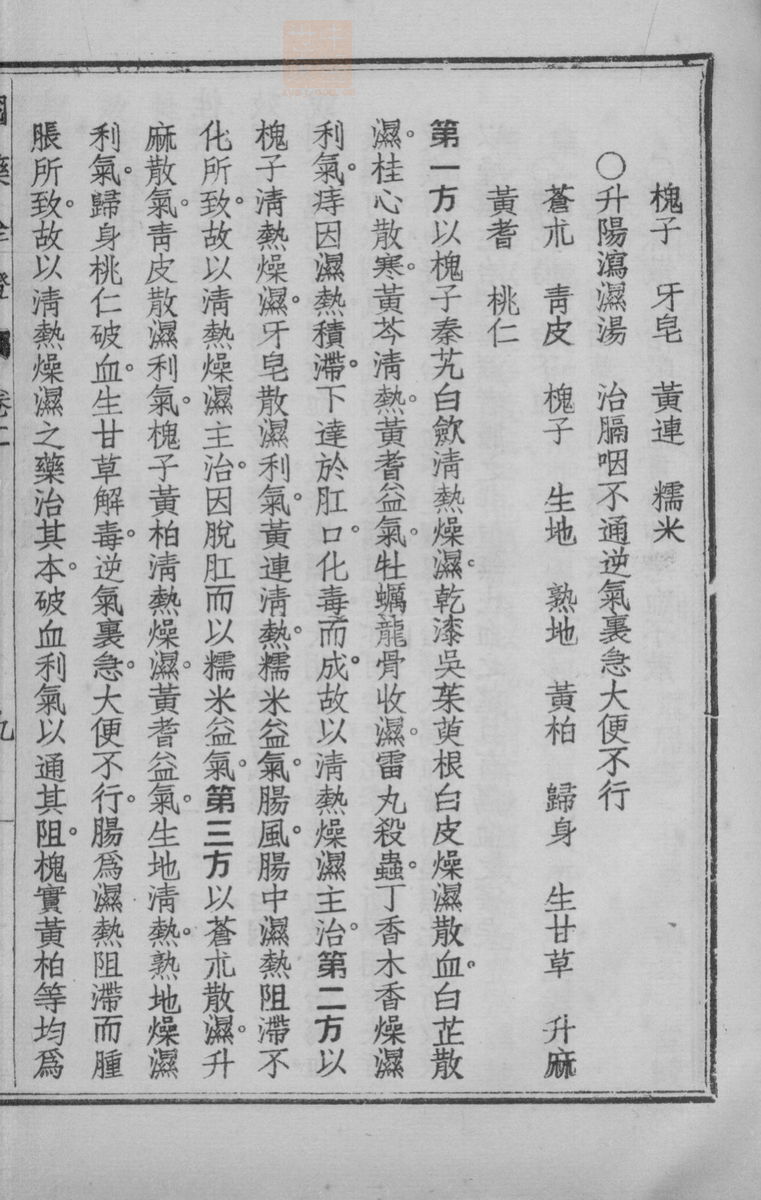 槐子　牙皂　黃連　糯米
○升陽瀉濕湯　治膈咽不通逆氣裏急大便不行
蒼朮　青皮　槐子　生地　熟地　黃柏　歸身　生甘草　升麻
黃耆　桃仁
第一方以槐子秦艽白歛淸熱燥濕。乾漆吳茱萸根白皮燥濕散血。白芷散
濕。桂心散寒。黃芩淸熱。黃耆益氣。牡蠣龍骨收濕。雷丸殺蟲。丁香木香燥濕
利氣。痔因濕熱積滯。下達於肛口。化毒而成。故以淸熱燥濕主治。第二方以
槐子淸熱燥濕。牙皂散濕利氣。黃連淸熱。糯米益氣。腸風腸中濕熱阻滯不
化所致。故以淸熱燥濕主治。因脫肛而以糯米益氣。第三方以蒼朮散濕。升
麻散氣。靑皮散濕利氣。槐子黃柏淸熱燥濕。黃耆益氣。生地淸熱。熟地燥濕
利氣。歸身桃仁破血。生甘草解毒。逆氣裏急。大便不行。腸爲濕熱阻滯而腫
脹所致。故以淸熱燥濕之藥治其本。破血利氣以通其阻。槐實黃柏等均爲
國藥
卷二
九